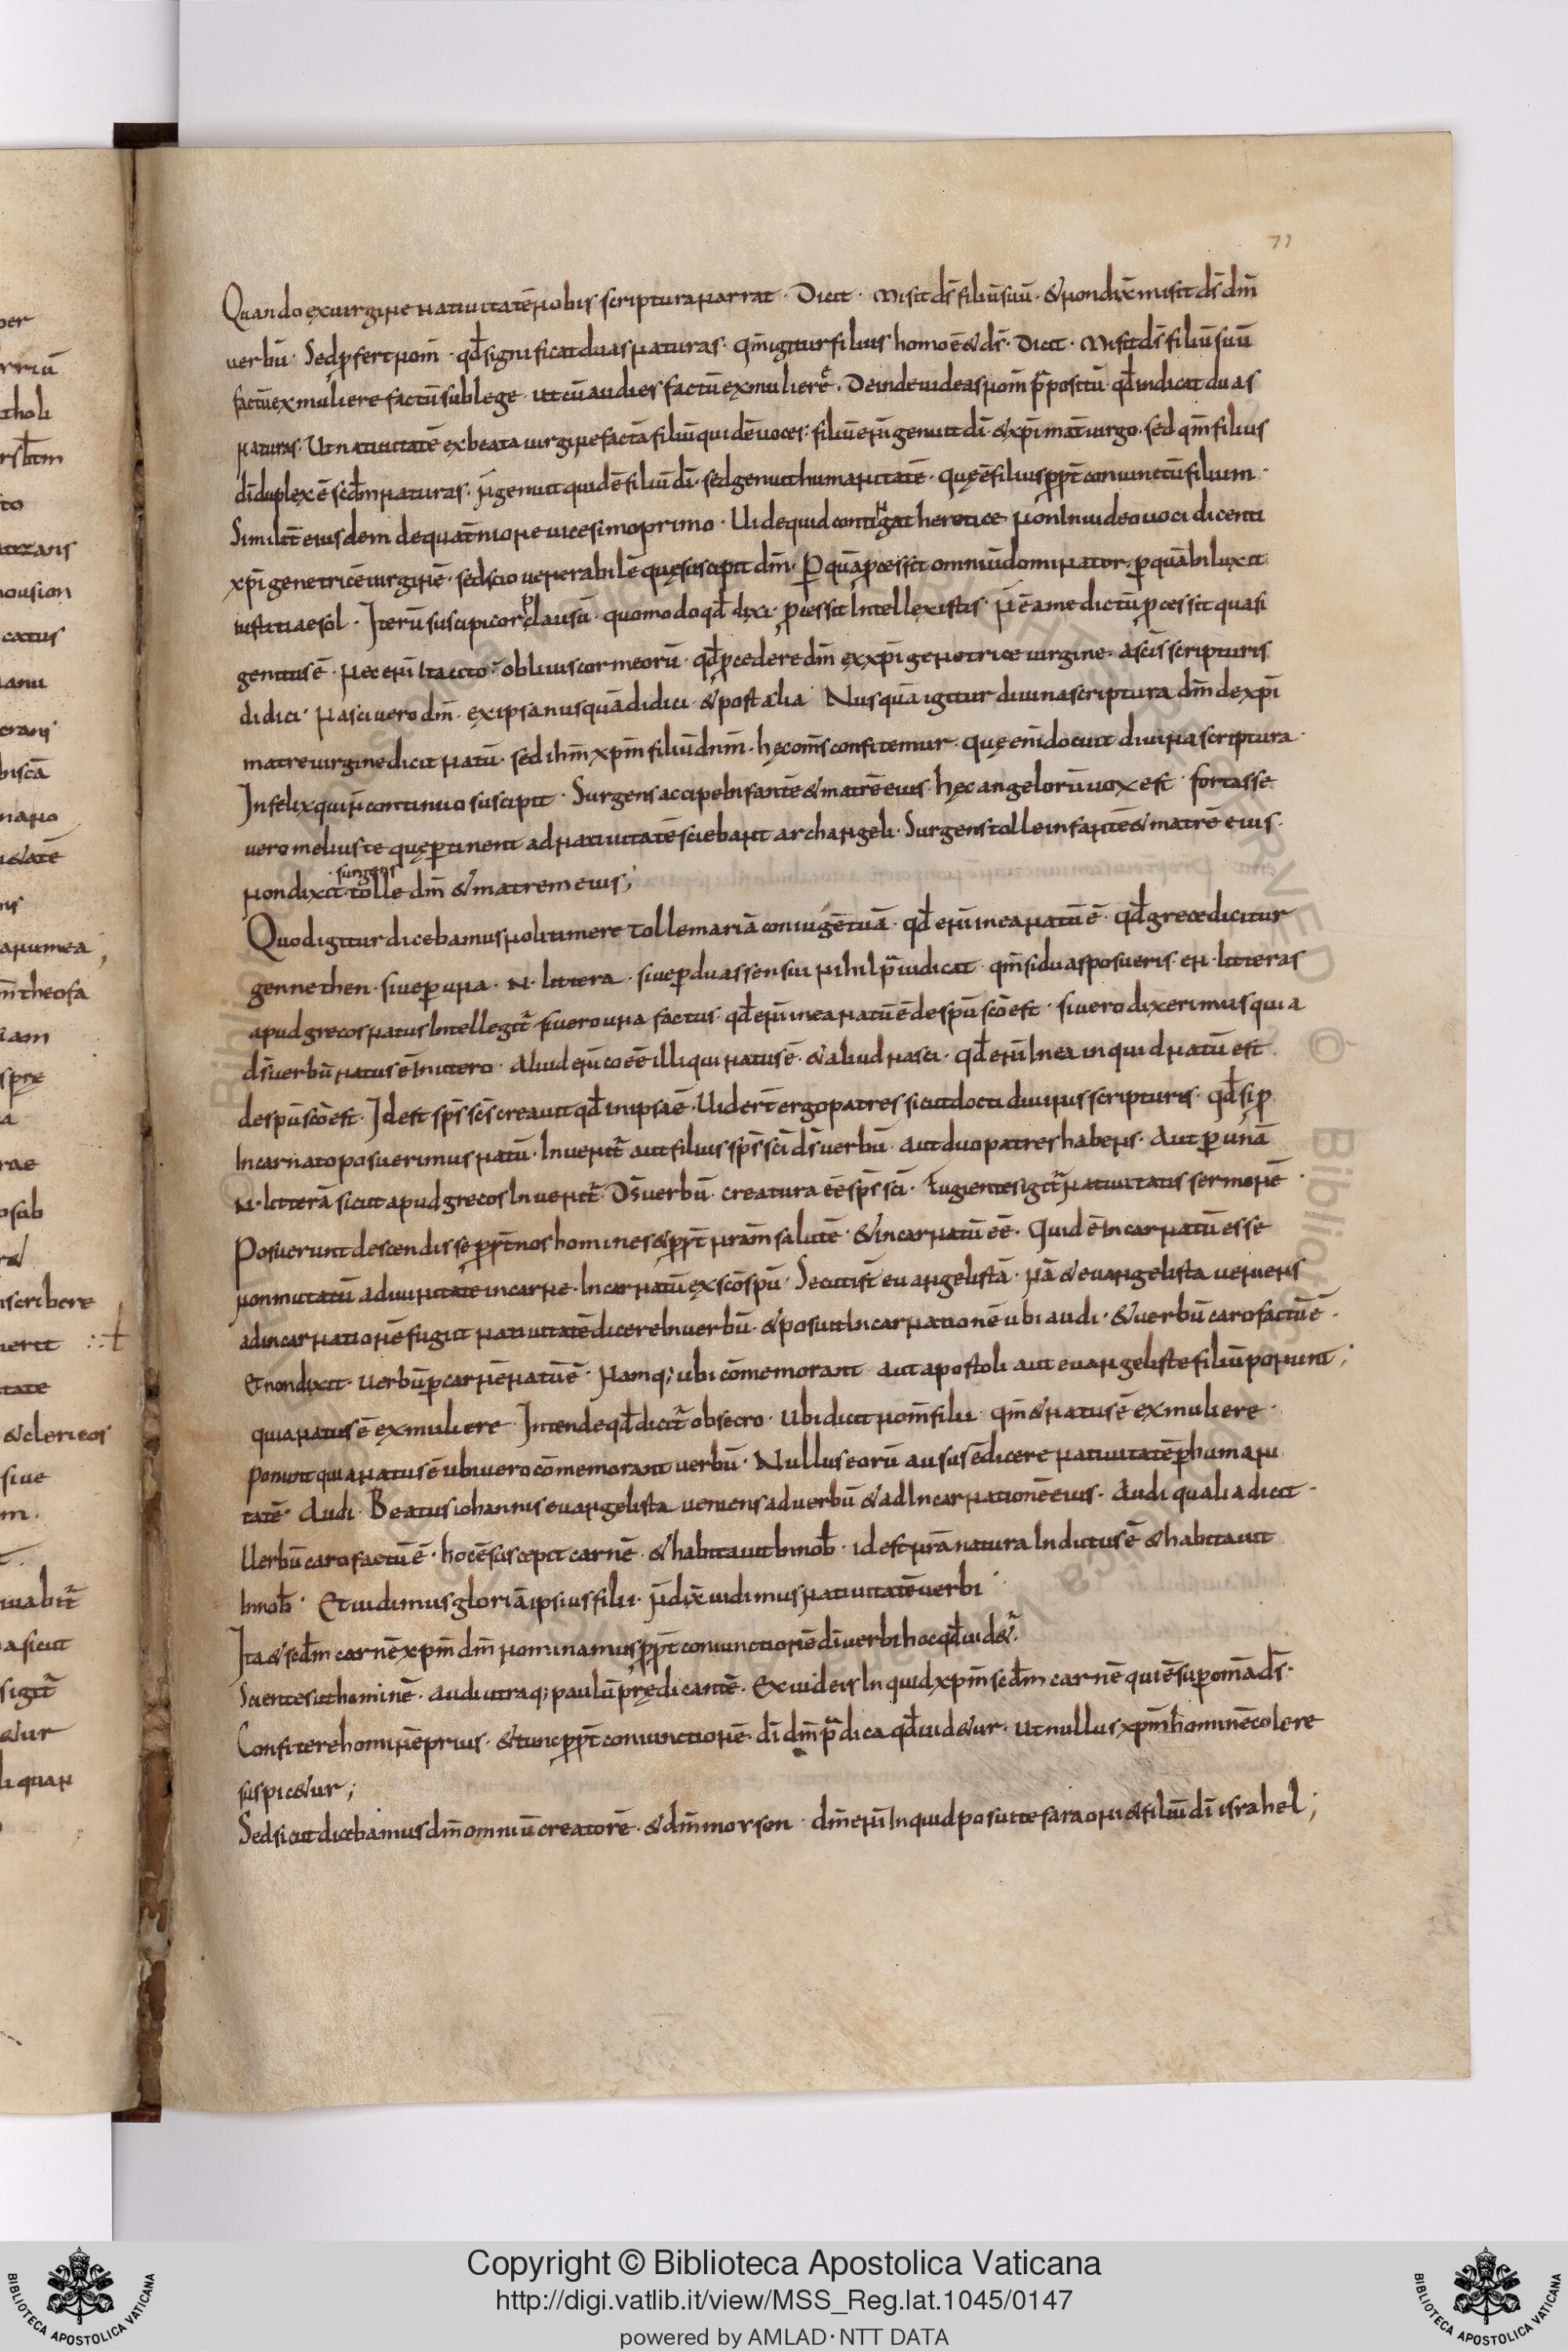 71
Quando ex uirgine natiuitatē nobis scriptura narrat · Dicit · misit ds̄ filiū suū · & non dix̄ misit ds̄ dm̄
uerbū · Sed p̄fert nom̄ · qd̄ significat duas naturas · qm̄ igitur filius homo ē & ds̄ · Dicit · Misit ds̄ filiū suū
factū ex muliere factū sub lege · ut cū audies factū ex muliere · Deinde uideas nom̄ p̄positū · qd̄ indicat duas
naturas · Ut natiuitatē ex beata uirgine factā filiū quidē uoces · filiū eni genuit dī · & xp̄i mat̄ uirgo · sed qm̄ filius
dī duplex ē scd̄m naturas · n̄ genuit quidē filiū dī · sed genuit humanitatē · quę ē filius pp̄t coniunctū filium ·
Similit̄ eiusdem de quat̄nione uicesimo primo · Uide quid contigat heretice non inuideo uoci dicenti
xp̄i genetricē uirginē · sed scio uenerabilē quę suscipit dm̄ · p̄ quā p̄cessit omniū dominator · p̄ quā biluxit
iustitiae sol · Iterū suspicor plausū · quomodo qd̄ dixi · p̄cessit intellexistis · n̄ ē a me dictū p̄cessit quasi
genitus ē · nec enī ita cito obliuiscor meorū · qd̄ p̄cedere dm̄ ex xp̄i genetrice uirgine · a sc̄is scripturis
didici · nasci uero dm̄ · ex ipsa nusquā didici · & post alia Nusquā igitur diuina scriptura dm̄ de xp̄i
matre uirgine dicit natū · sed ihm̄ xp̄m filiū dnm̄ · hęc om̄s confitemur · quę enī docuit diuina scriptura ·
Infelix qui n̄ continuo suscipit · Surgens accipe infantē & matrē eius · hęc angelorū uox est · fortasse
uero melius te quę p̄tinent ad natiuitatē sciebant archangeli · Surgens tolle infantē & matrē eius ·
· surgens
non dixit tolle dm̄ & matrem eius ;
Quod igitur dicebamus noli timere tolle mariā coniugē tuā · qd̄ enī in ea natū ē · qd̄ grece dicitur
gennethen · siue p̄ una · N · littera · siue p̄ duas sensui nihil p̄iudicat · qm̄ si duas posueris · en · litteras
apud grecos natus intellegit̄ si uero una factus · qd̄ enī in ea natū ē de spū sc̄o est · si uero dixerimus quia
ds̄ uerbū natus ē in utero · aliud enī coēē illi qui natus ē · & aliud nasci · qd̄ enī in ea inquid natū est
de spū sc̄o est · Id est sps̄ sc̄s creauit qd̄ in ipsa ē · Uider̄t ergo patres sicut docti diuinis scripturis · qd̄ si p̄
incarnato posuerimus natū · inuenit̄ aut filius sps̄ sc̄i ds̄ uerbū · aut duo patres habens · aut p̄ unā
N · litterā sicut apud grecos inuenit̄ · Ds̄ uerbū · creatura ēē sps̄ sc̄i · Fugientes igit̄ natiuitatis sermonē ·
Posuerunt descendisse pp̄t nos homines & pp̄t nr̄am salutē · & incarnatū ēē · Quid ē incarnatū esse
non mutatū a diuinitate in carne · incarnatū ex sc̄o spū · Secuti st̄ euangelistā · nā & euangelista ueniens
ad incarnationē fugiit natiuitatē dicere in uerbū · & posuit incarnationē ubi audi · & uerbū caro factū ē ·
Et non dixit · uerbū p̄ carnē natū ē · Namq; ubi cōmemorant aut apostoli aut euangeliste filiū ponunt ;
quia natus ē ex muliere · Intende qd̄ dicit̄ obsecro · Ubi dicit nom̄ filii qm̄ & natus ē ex muliere ·
ponunt quia natus ē ubi uero cōmemorant uerbū · Nullus eorū ausus ē dicere natiuitatē p̄ humani
tatē · Audi · Beatus iohannis euangelista ueniens ad uerbū & ad incarnationē eius · Audi qualia dicit ·
Uerbū caro factū ē · hoc ē suscepit carnē · & habitauit in nob̄ · id est nr̄ā natura indutus ē & habitauit
in nob̄ · Et uidimus gloriā ipsius filii · n̄ dix̄ uidimus natiuitatē uerbi ·
Ita & scd̄m carnē xp̄m dm̄ nominamus pp̄t coniunctionē dī uerbi hoc qd̄ uid&̄ ·
Scientes ut hominē · audi utraq; paulū prędicantē · Ex iudeis inquid xp̄m scd̄m carnē qui ē sup̄ om̄a ds̄ ·
Confitere hominē prius · & tunc pp̄t coniunctionē · dī dm̄ p̄dica qd̄ uid&ur · ut nullus xp̄m hominē colere
suspic&ur ;
Sed sicut dicebamus dm̄ omniū creatorē · & dm̄ moysen · dm̄ enī inquid posui te faraoni & filiū dī israhel ;
per
tholi
to
nousion
catus
anu
scribere
tate
& clericos
siue
m .
a sicut
&ur
Copyright © Biblioteca Apostolica Vaticana
http://digi.vatlib.it/view/MSS_Reg.lat.1045/0147
powered by AMLAD · NTT DATA
BIBLIOTECA APOSTOLICA VATICANA
BIBLIOTECA APOSTOLICA VATICANA